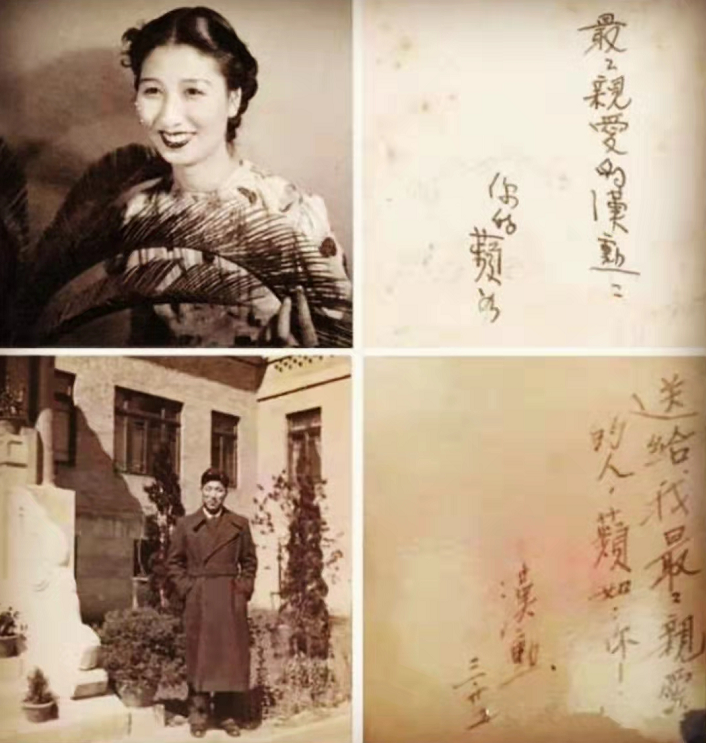 最〻親愛的漢勳：
你的蘋如
送給我最〻親愛
的人，蘋如：你！
漢勳.
三廿五